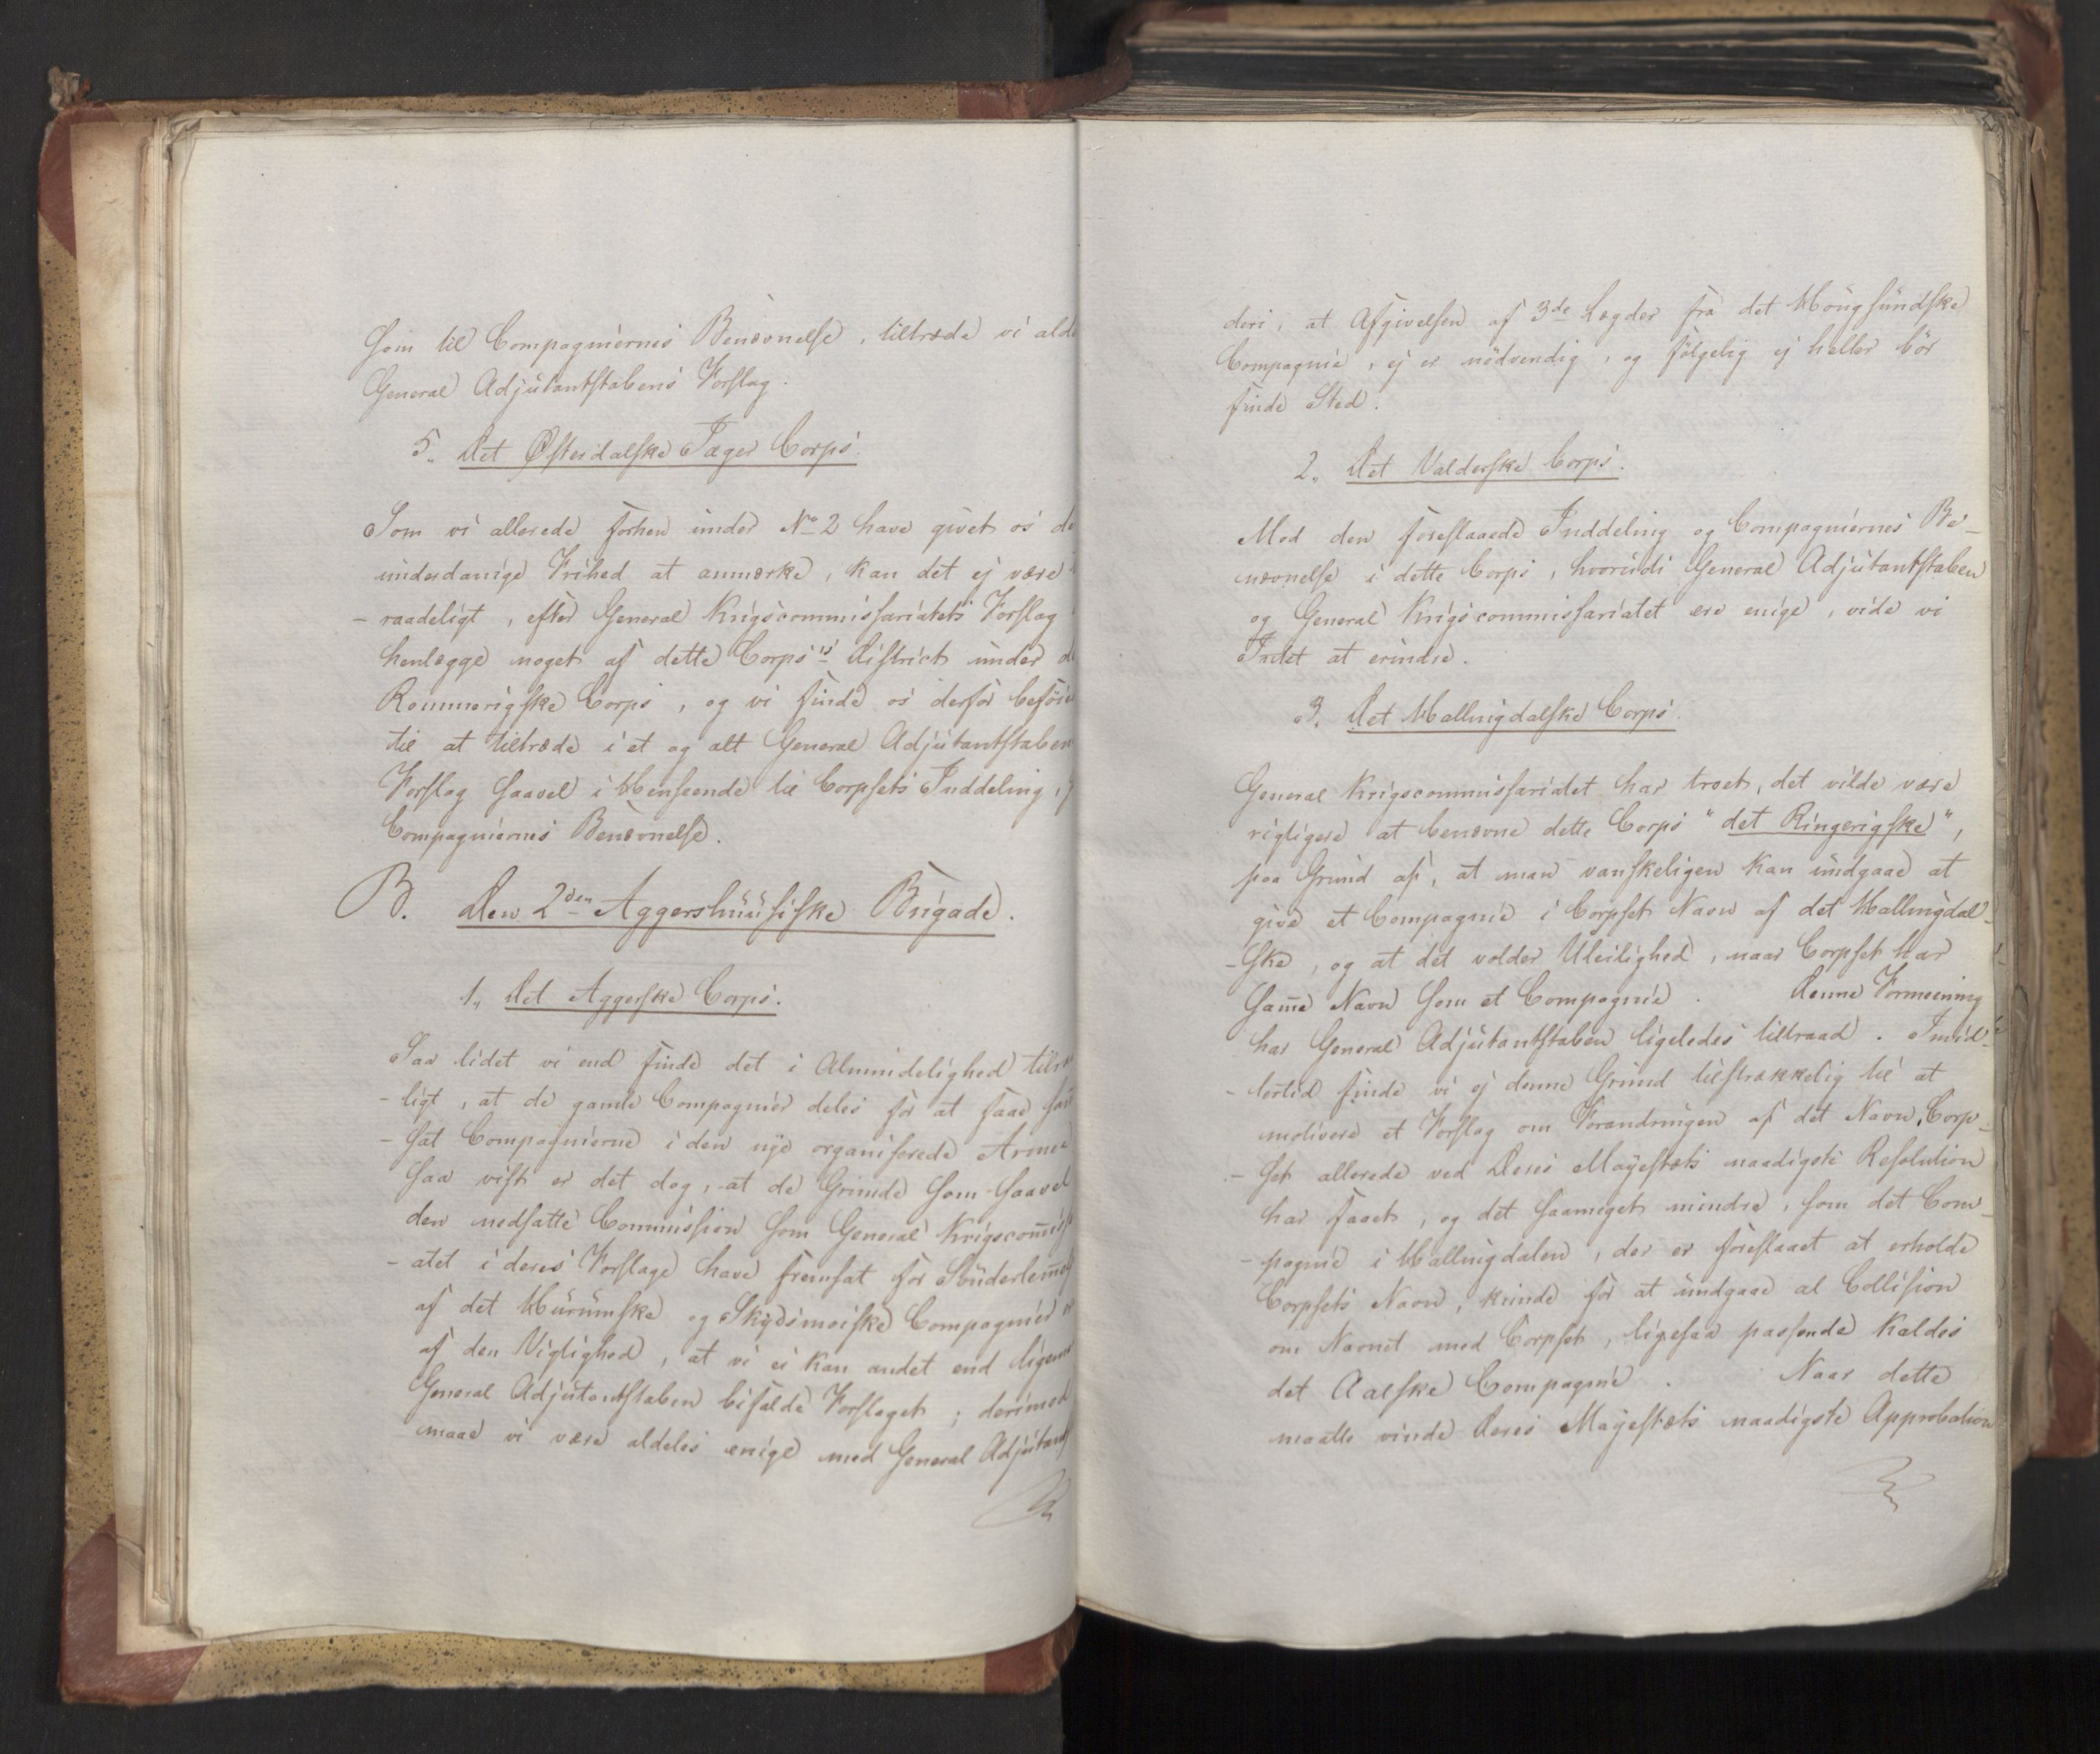 som til Compagniernes Benævnelse, tiltræde vi alde
General Adjutantstabens Forslag.
5. Det Østerdalske Jæger Corps.
Som vi allerede forhen under No 2 have givet os de
underdanige Frihed at anmærke, kan det ej være
- raadeligt, efter General Krigscommissariatets Forslag
henlægge noget af dette Corps's District under d
Rommerigske Corps, og vi finde os derfor beföie
til at tiltræde i et og alt General Adjutantstaben
Forslag saavel i Henseende til Corpsets Inddeling,
Compagniernes Benævnelse.
B. Den 2den Aggershuusiske Brigade.
1. Det Aggerske Corps.
Saa lidet vi end finde det i Almindelighed tilra
- ligt, at de gamle Compagnier deles for at faae
- sat Compagnierne i den nye organiserede Armee
saa vist er det dog, at de Grunde som saavel
den nedsatte Commission som General Krigscom̅iss
- atet i deres Forslage have fremsat for Sönderlem̅e
af det Hurumske og Skydsmoiske Compagnier
af den Vigtighed, at vi ei kan andet end ligeme
General Adjutantstaben bifalde Forslaget; derimod
maae vi være aldeles enige med General Adjutant
deri, at Afgivelsen af 3de Lægder fra det Hougsundske
Compagnie, ej er nödvendig, og fölgelig ej heller bör
finde Sted.
2. Det Valderske Corps.
Mod den foreslaaede Inddeling og Compagniernes Be-
nævnelse i dette Corps, hvorudi General Adjutantstaben
og General Krigscommissariatet ere enige, vide vi
Intet at erindre.
3. Det Hallingdalske Corps.
General Krigscommissariatet har troet, det vilde være
rigtigere at benævne dette Corps "det Ringerigske",
paa Grund af, at man vanskeligen kan undgaae at
give et Compagnie i Corpset Navn af det Hallingdal-
- ske, og at det volder Uleilighed, naar Corpset har
sam̅e Navn som et Compagnie. Denne Formeening
har General Adjutantstaben ligeledes tiltraad. Imid-
- lertid finde vi ej denne Grund tilstrækkelig til at
motivere et Forslag om Forandringen af det Navn, Corp-
- set allerede ved Deres Mayestæts naadigste Resolution
har faaet, og det saameget mindre, som det Com-
- pagnie i Hallingdalen, der er foreslaaet at erholde
Corpsets Navn, kunde for at undgaae al Collision
om Navnet med Corpset, ligesaa passende kaldes
det Aalske Compagnie. Naar dette
maatte vinde Deres Mayestæts naadigste Approbation